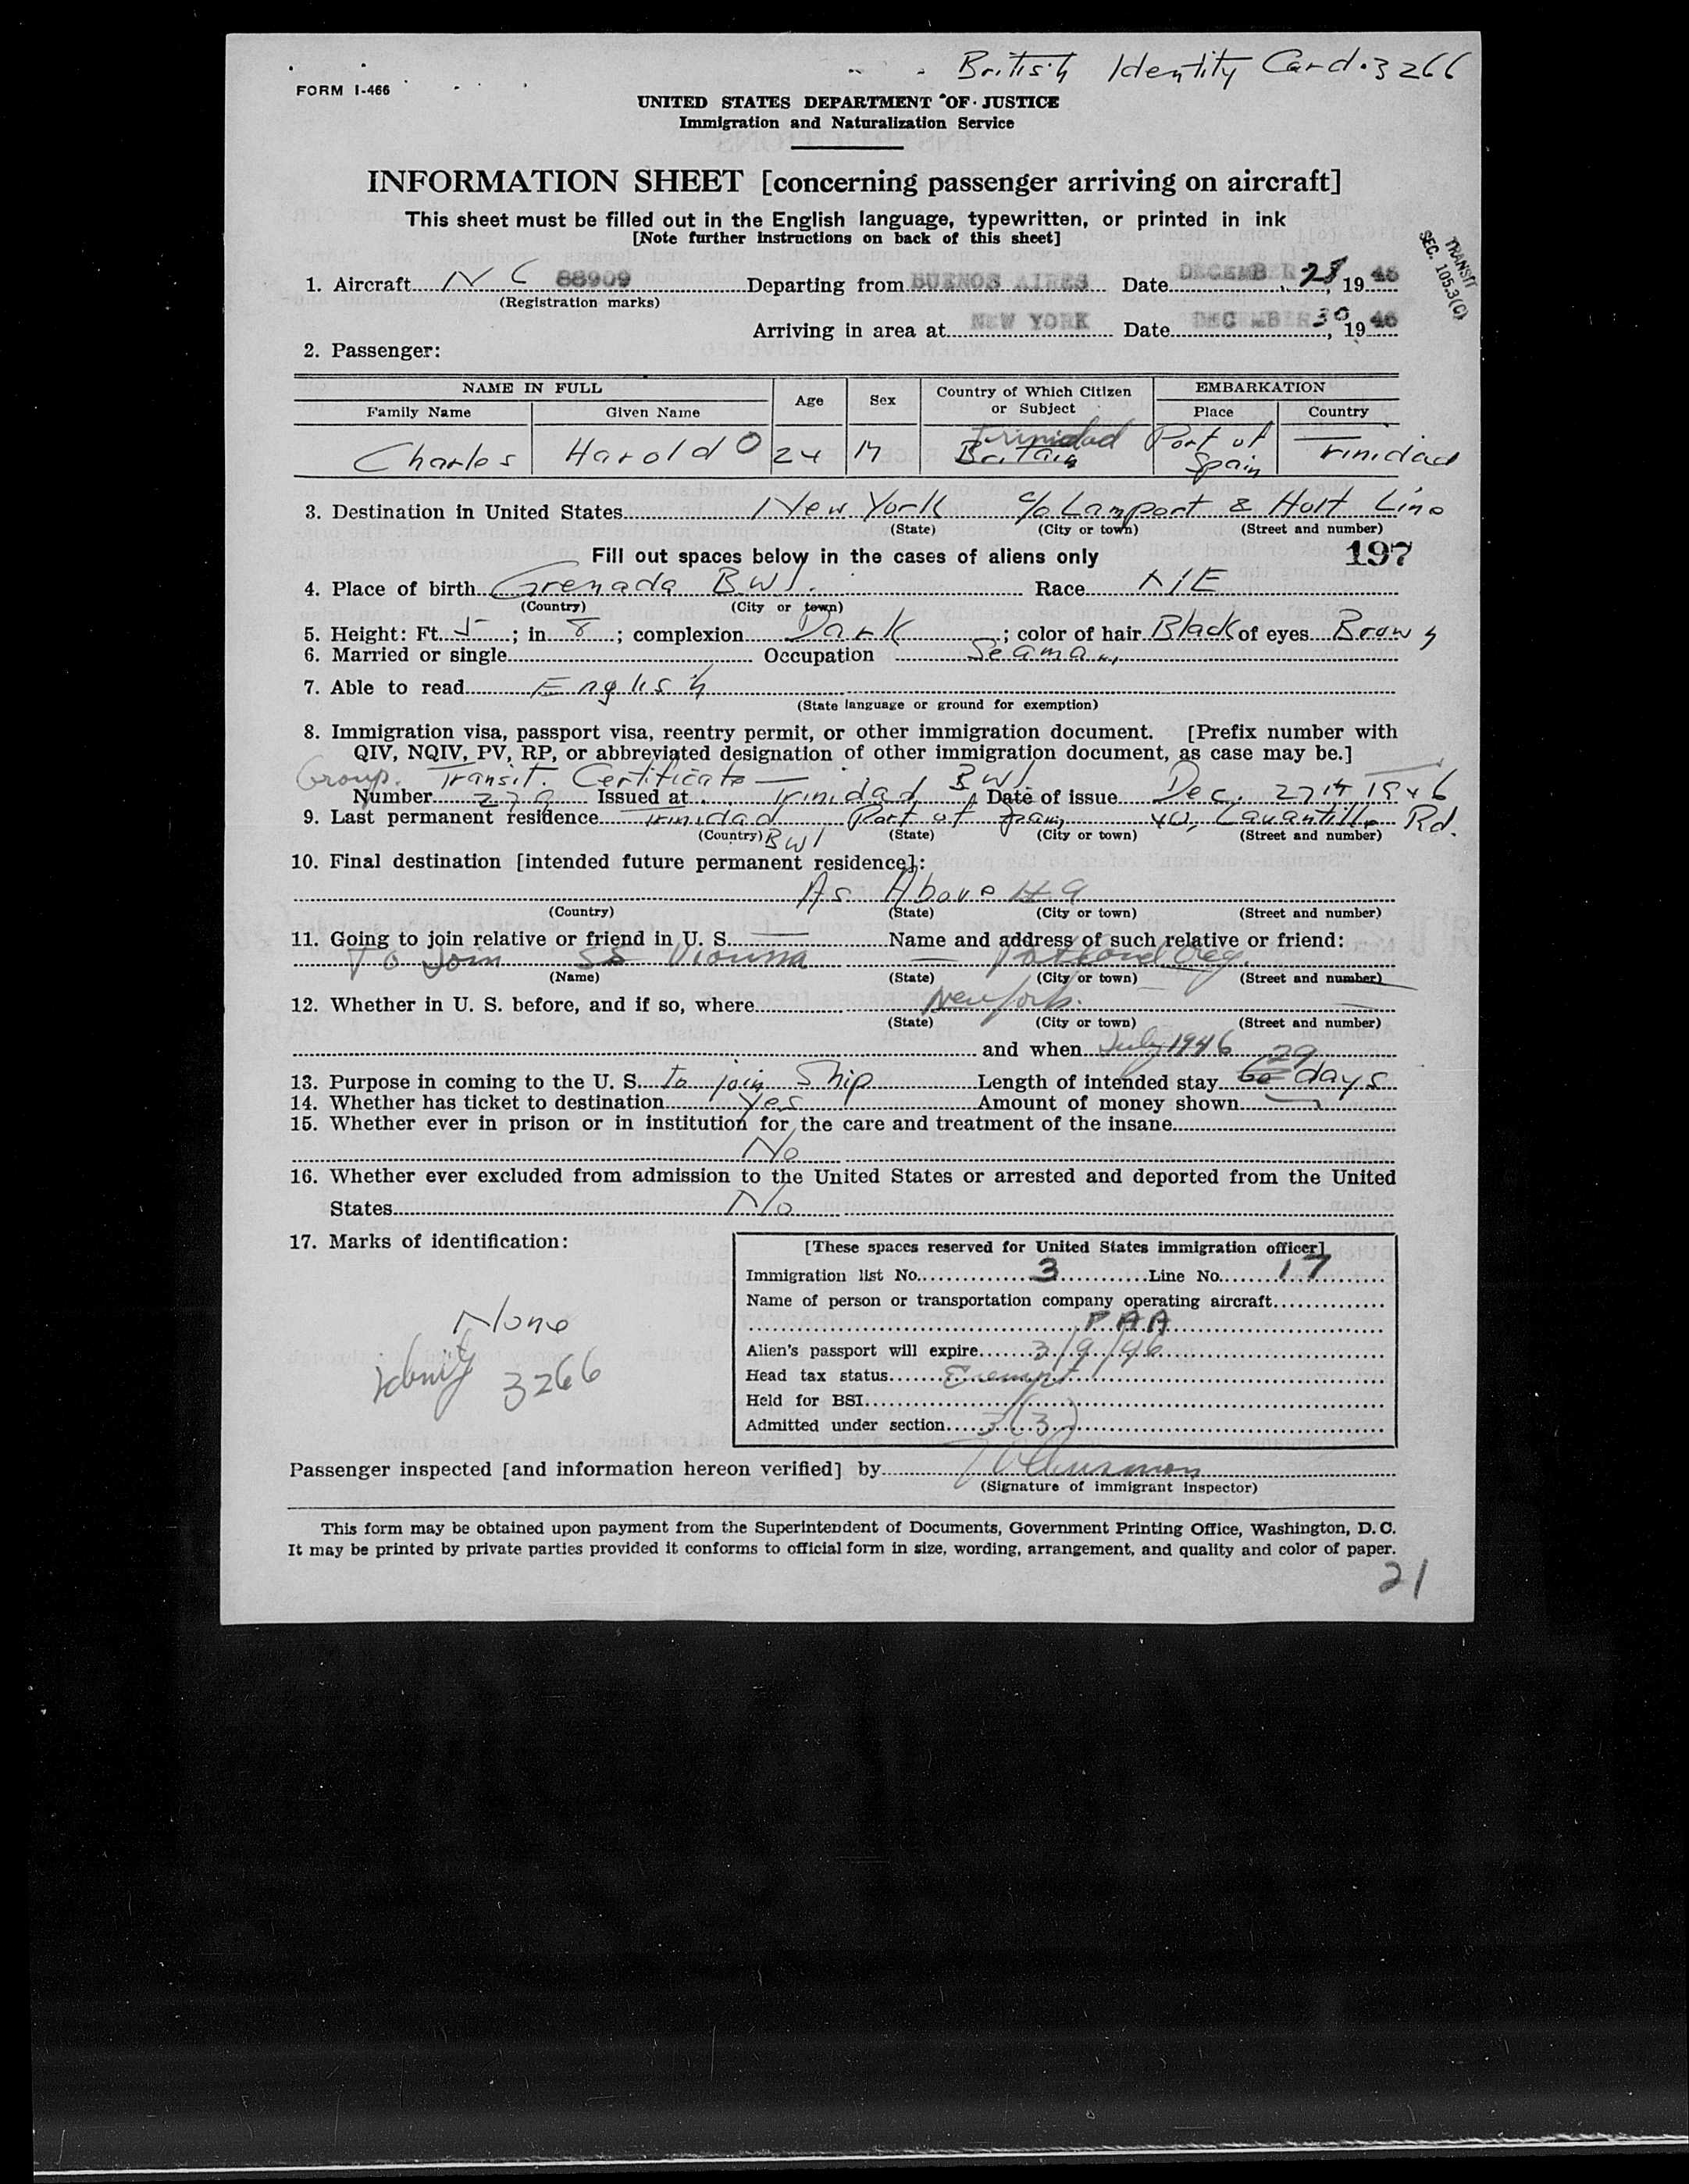 British Identity Card. 3266
FORM I-466
UNITED STATES DEPARTMENT OF JUSTICE
Immigration and Naturalization Service
INFORMATION SHEET [concerning passenger arriving on aircraft]
This sheet must be filled out in the English language, typewritten, or printed in ink
[Note further instructions on back of this sheet]
TRANSIT
SEC. 105.3(C)
1. Aircraft NC 88909 Departing from BUENOS AIRES Date DECEMBER 28, 1946
(Registration marks)
Arriving in area at NEW YORK Date DECEMBER 30, 1946
2. Passenger:
NAME IN FULL Age Sex Country of Which Citizen or Subject EMBARKATION
Family Name Given Name Place Country
Charles Harold O 24 M Britain Trinidad Port of Spain Trinidad
3. Destination in United States New York c/o Lamport & Holt Line
(State) (City or town) (Street and number)
Fill out spaces below in the cases of aliens only 197
4. Place of birth Grenada BWI. Race
(Country) (City or town)
5. Height: Ft. 5; in. 8; complexion Dark; color of hair Black of eyes Brown
6. Married or single Occupation Seaman
7. Able to read English
(State language or ground for exemption)
8. Immigration visa, passport visa, reentry permit, or other immigration document. [Prefix number with
QIV, NQIV, PV, RP, or abbreviated designation of other immigration document, as case may be.]
Group. Transit. Certificate
Number Issued at Trinidad BWI Date of issue Dec. 27th 1946
9. Last permanent residence Trinidad Port of Spain Rd.
(Country) BWI (State) (City or town) (Street and number)
10. Final destination [intended future permanent residece]:
As Above # 9
(Country) (State) (City or town) (Street and number)
11. Going to join relative or friend in U. S. Name and address of such relative or friend:
To Join SS Portland Oreg.
(Name) (State) (City or town) (Street and number)
12. Whether in U. S. before, and if so, where New York.
(State) (City or town) (Street and number)
and when July 1946
13. Purpose in coming to the U. S. To join Ship Length of intended stay 60 29 days
14. Whether has ticket to destination Yes Amount of money shown
15. Whether ever in prison or in institution for the care and treatment of the insane
No
16. Whether ever excluded from admission to the United States or arrested and deported from the United
States No
17. Marks of identification:
None
Identity 3266
[These spaces reserved for United States immigration officer]
Immigration list No. 3 Line No. 17
Name of person or transportation company operating aircraft
PAA
Alien's passport will expire 3/9/46
Head tax status Exempt
Held for BSI
Admitted under section 3(3)
Passenger inspected [and information hereon verified] by
(Signature of immigrant inspector)
This form may be obtained upon payment from the Superintendent of Documents, Government Printing Office, Washington, D. C.
It may be printed by private parties provided it conforms to official form in size, wording, arrangement, and quality and color of paper.
21